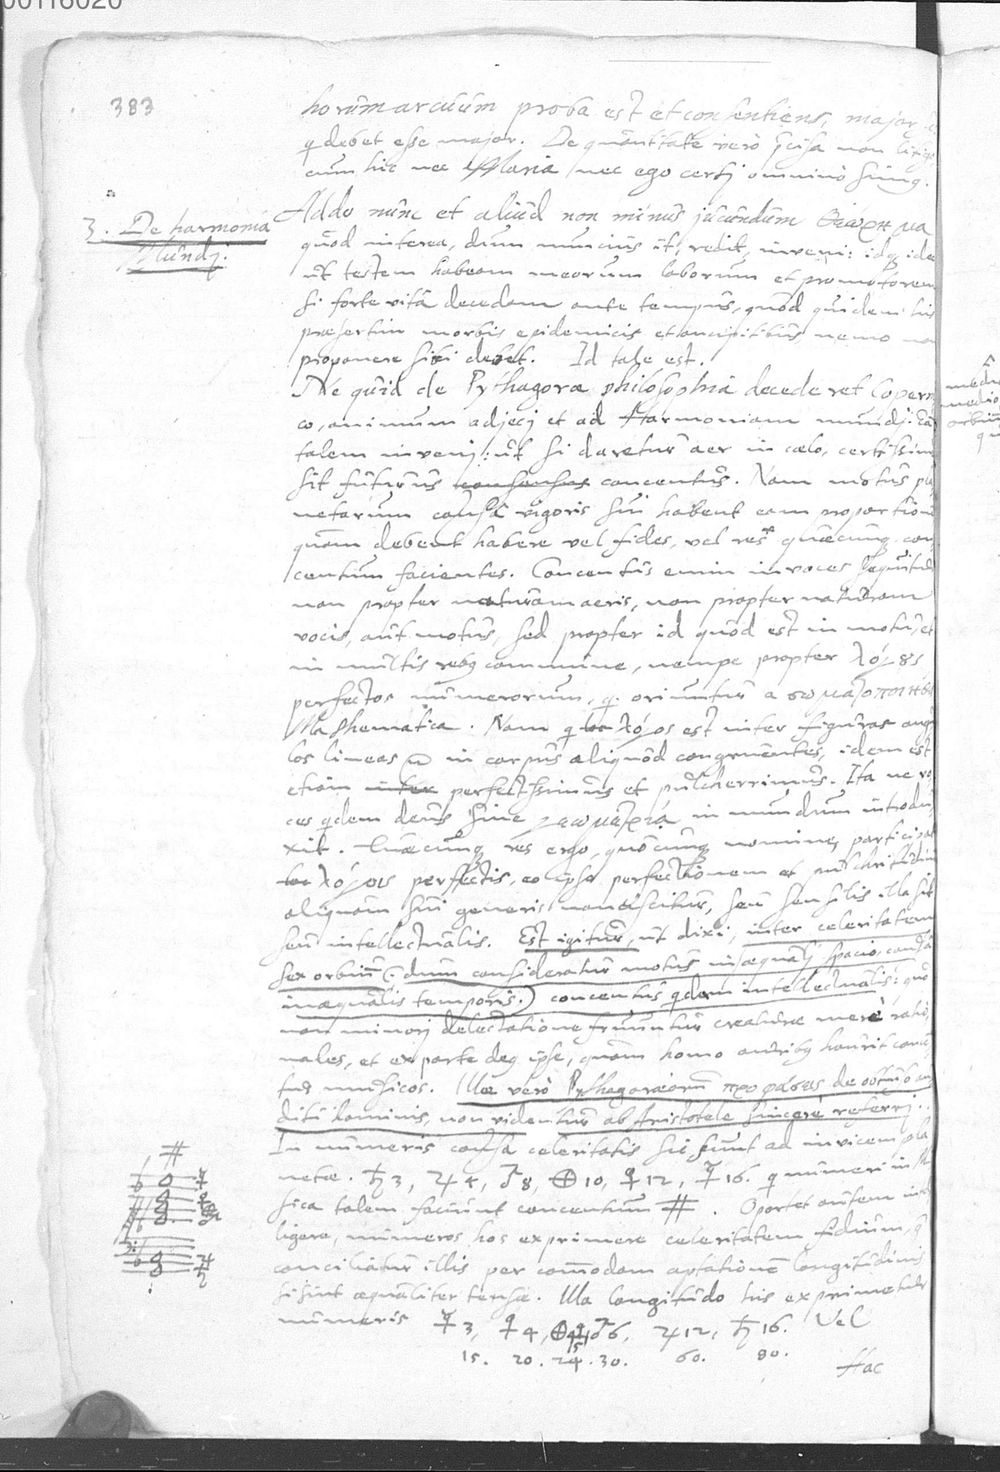 00116020
383
horum arcuum proba est et consentiens, major
q debet esse major. De quantitate vero
cum hic nec Maria nec ego certi omnino simus.
3. De harmonia
Mundj.
Addo nunc et aliud non minus jucundum θεωρημα
quod interea, dum nuncius it, redit, inveni: idq ideo
ut testem habeam meorum laborum et promotorem
si forte vita decedam ante tempus, quod quidem his
praesertim morbis epidemicis et ancipitibus nemo non
proponere sibi debet. Id tale est.
Ne quid de Pythagorae philosophia decederet Coperni
co, animum adjeci et ad Harmoniam mundj: Eam
talem invenj: ut si daretur aer in caelo, certissime
sit futurus concentus. Nam motus pla
netarum causa vigoris sui habent eam proportionem
quam debent habere vel fides, vel res quaecunq con
centum facientes. Concentus enim in voces sequitur
non propter naturam aeris, non propter naturam
vocis, aut motus, sed propter id quod est in motu, et
in multis rebq commune, nempe propter λόγους
perfectos numerorum, q oriuntur a σωματοποιησει
Mathematica. Nam q λόγος est inter figuras angu
los lineas in corpus aliquod congruentes, idem est
etiam inter perfectissimus et pulcherrimus. Ita ne vo
ces qdem deus sine γεωμετρία in mundum introdu
xit. Quaecunq res ergo, quocunq nomine, participat
λόγοις perfectis, eo ipso perfectionem et pulchritudinem
aliquam sui generis nanciscitur, seu sensilis illa sit
seu intellectualis. Est igitur, ut dixi, inter celeritatem
sex orbium (dum consideratur motus in aequalj spacio, causa
inaequalis temporis.) concentus qdam intellectualis: quo
non minorj delectatione fruuntur creaturae merè ratio
nales, et ex parte deq ipse, quam homo auribq haurit concen
tus musicos. Illae verò Pythagoraeorum προφάσεις de
ditu hominis, non videntur ab Aristotele sincerè referrj.
In numeris causa celeritatis sic sunt ad invicem pla
netae. ♄ 3, ♃ 4, ♂ 8, ⊕ 10, ♀ 12, ☿ 16. q numeri in Mu
sica talem faciunt concentum #. Oportet autem intel
ligere, numeros hos exprimere celeritatem fidium, q
conciliatur illis per commodam aptationem longitudinis
si sint aequaliter tensae. Illa longitudo his exprimetur
numeris ☿ 3, ♀ 4, ⊕ ♂ 6, ♃ 12, ♄ 16. Vel
15. 20. 24. 30. 60. 80.
Hac
#
☿
♀
♃
♄
medio